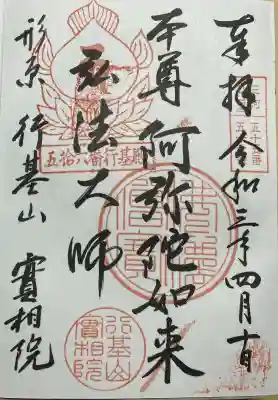 奉拝 令和三年四月十日
本尊 阿弥陀如来
弘法大師
形原 行基山 實相院
五拾八番行基殿
行基山
實相院